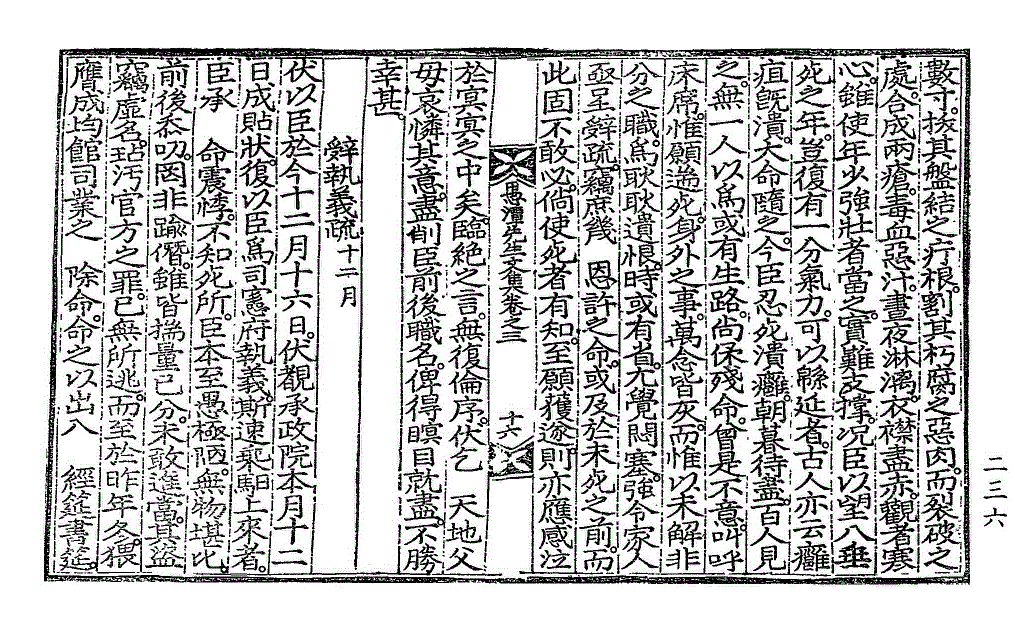 數寸。拔其盤結之疔根。割其朽腐之惡肉。而裂破之
處。合成兩瘡。毒血惡汁。晝夜淋漓。衣襟盡赤。觀者寒
心。雖使年少強壯者當之。實難支撐。况臣以望八垂
死之年。豈復有一分氣力。可以緜延者。古人亦云癰
疽旣潰。大命隨之。今臣忍死潰癰。朝暮待盡。百人見
之。無一人以爲或有生路。尙保殘命。曾是不意。叫呼
床席。惟願遄死。身外之事。萬念皆灰。而惟以未解非
分之職。爲耿耿遺恨。時或有省。尤覺悶塞。強令家人
亟呈辭疏。竊庶幾 恩許之命。或及於未死之前。而
此固不敢必。倘使死者有知。至願獲遂。則亦應感泣
愚潭先生文集卷之三 十六
於冥冥之中矣。臨絶之言。無復倫序。伏乞 天地父
母哀憐其意。盡削臣前後職名。俾得瞑目就盡。不勝
幸甚。
辭執義疏 十二月
伏以臣於今十二月十六日。伏覩承政院本月十二
日成貼狀。復以臣爲司憲府執義。斯速乘馹上來者。
臣承 命震悸。不知死所。臣本至愚極陋。無物堪比。
前後忝叨。罔非踰僭。雖皆揣量已分。未敢進當。其盜
竊虛名。玷汚官方之罪。已無所逃。而至於昨年冬。猥
膺成均館司業之 除命。命之以出入 經筵書筵。
二三六